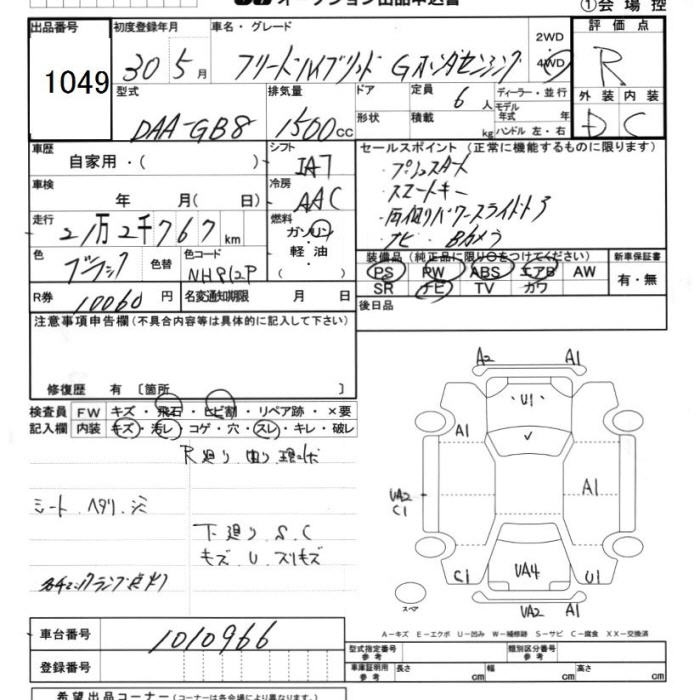 オークション出品申込書
①会場控
出品番号 初度登録年月 車名・グレード 2WD 評価点
1049 30 5月 フリードハイブリッド Gホンダセンシング 4WD R
型式 排気量 ドア 定員 6人 ディーラー・並行 外装 内装
モデル
DAA-GB8 1500cc 形状 積載 kg 年式 年 D C
ハンドル 左・右
車歴 シフト セールスポイント(正常に機能するものに限ります)
自家用・( ) IA7 ・プッシュスタート
車検 冷房 ・スマートキー
年 月( 日) AAC ・両側パワースライドドア
走行 燃料 ・ナビ ・Bカメラ
2万2千767km ガソリン
色 色替 色コード 軽油 装備品(純正品に限り○をつけてください) 新車保証書
ブラック NH912P PS PW ABS エアB AW 有・無
R券 10060円 名変通知期限 月 日 SR TV カワ
注意事項申告欄(不具合内容等は具体的に記入して下さい) 後日品
修復歴 有 〔箇所 〕
検査員 FW キズ・飛石・ヒビ割・リペア跡・×要
記入欄 内装 キズ・汚レ・コゲ・穴・スレ・キレ・破レ
シート ヘタリ・シミ
下廻り S.C
キズ U スリキズ
A2 A1
U1
A1
A1
UA2
C1
C1 UA4 U1
スペア UA2 A1
A－キズ E－エクボ U－凹み W－補修跡 S－サビ C－腐食 XX－交換済
車台番号 1010966
型式指定番号 参考 類別区分番号 参考
登録番号 車庫証明用 参考 長さ cm 幅 cm 高さ cm
希望出品コーナー(コーナーは各会場により異なります。)